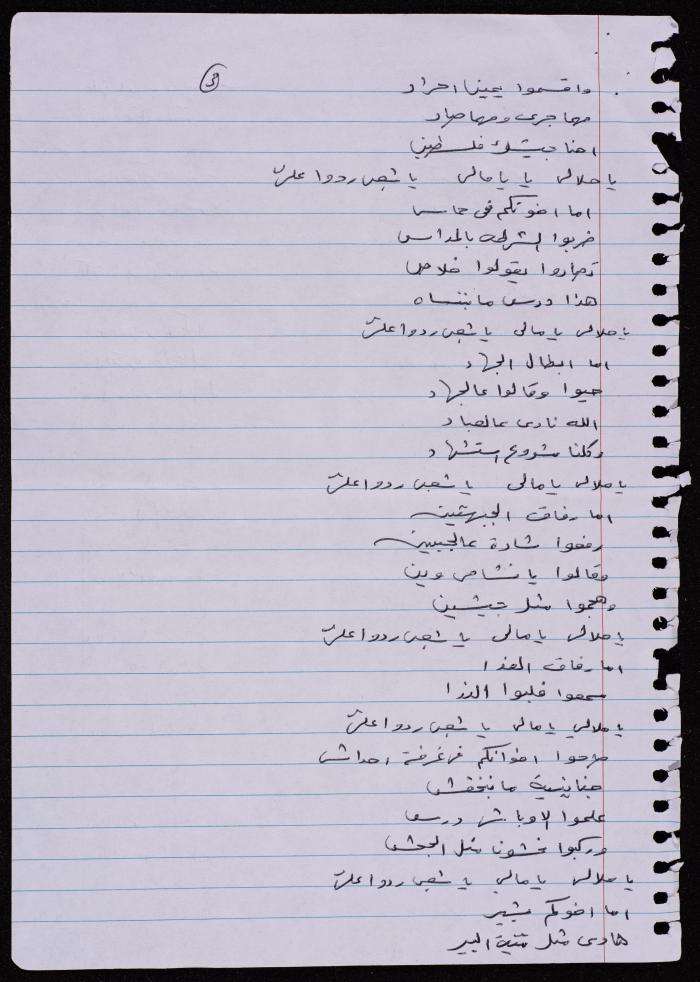 ٣
واقسموا يمين احرار
مهاجرى ومهاصار
احنا جيشك فلسطين
يا حلالي يا يا مالي يا شعبي ردوا عليّ
اما اخوتكم في حماس
ضربوا الشرطه بالمداس
تصاروا يقولوا خلاص
هذا درس ما بننساه
يا حلالي يا مالي يا شعبي ردوا عليّ
اما ابطال الجهاد
حيوا وقالوا عالجهاد
الله نادى عالعباد
وكلنا مشروع استشهاد
يا حلالي يا مالي يا شعبي ردوا عليّ
اما رفاق الجبهتين
رفعوا شادة عالجبين
وقالوا يا نشامى وين
وهجموا مثل جيشين
يا حلالي يا مالي يا شعبي ردوا عليّ
اما رفاق الفدا
سمعوا فلبوا الندا
يا حلالي يا مالي يا شعبي ردوا عليّ
صاحوا اخوانكم في غرفة احداش
ما بنخفش
علموا الاوباش درس
وركبوا مثل الجحش
يا حلالي يا مالي يا شعبي ردوا عليّ
اما اخوكم بشير
هادى مثل البير